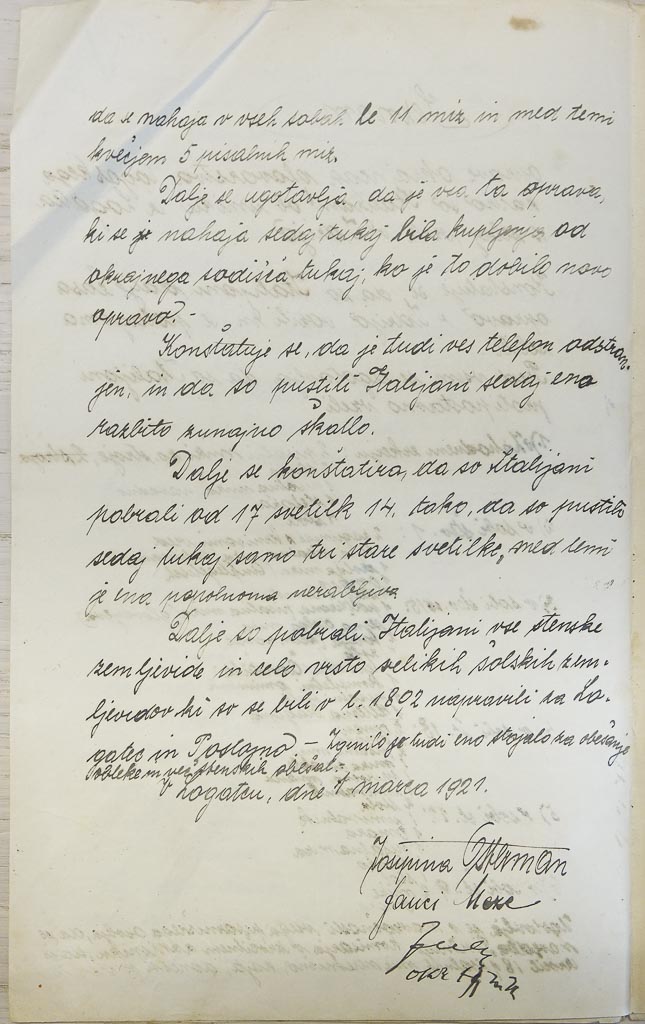 da se nahaja v vseh sobah le 11 miz in med temi
kvečjem 5 pisalnih miz.
Dalje se ugotavlja da je vsa ta oprava,
ki se je nahaja sedaj tukaj bila kupljena od
okrajnega sodišča tukaj, ko je to dobilo novo
opravo. -
Konštatuje se, da je tudi ves telefon odstran-
jen, in da so pustili Italijani sedaj eno
razbito zunajno škatlo.
Dalje se konštatira, da so Italijani
pobrali od 17 svetilk 14. tako, da so pustili
sedaj tukaj samo tri stare svetilke, med temi
je ena popolnoma nerabljiva
Dalje so pobrali Italijani vse stenske
zemljevide in celo vrsto velikih šolskih zem-
ljevidov ki so se bili v l. 1892 napravili za Lo-
gatec in Postojno - Izginilo je tudi eno stojalo za obešanje
obleke in več stenskih obešal.-
V Logatcu, dne marca 1921.
Josipina Osterman